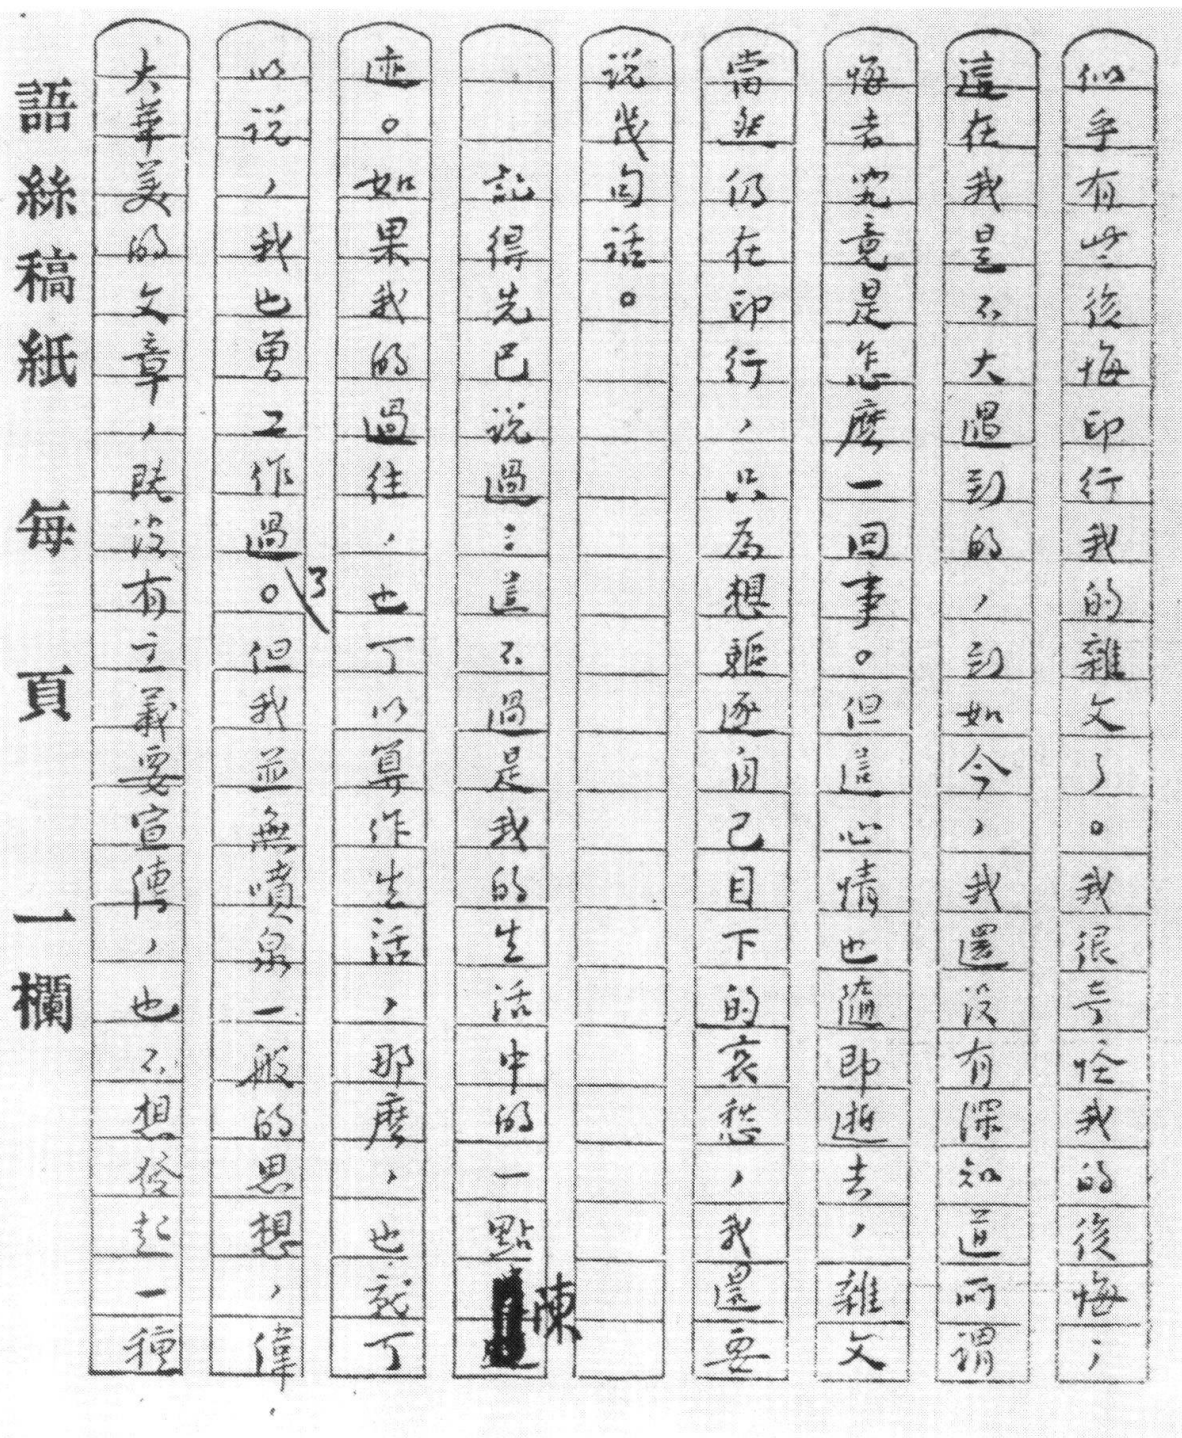 似乎有些後悔印行我的雜文了。我很奇怪我的後悔；
這在我是不大遇到的，到如今，我還没有深知道所謂
悔者究竟是怎麽一回事。但這心情也隨即逝去，雜文
當然仍在印行，只為想驅逐自己目下的哀愁，我還要
说幾句話。
記得先已说過：這不過是我的生活中的一點陳
迹。如果我的過往，也可以算作生活，那麽，也就可
以说，我也曾工作過了。但我並無噴泉一般的思想，偉
大華美的文章，既没有主義要宣傳，也不想發起一種
語絲稿紙 每頁一欄